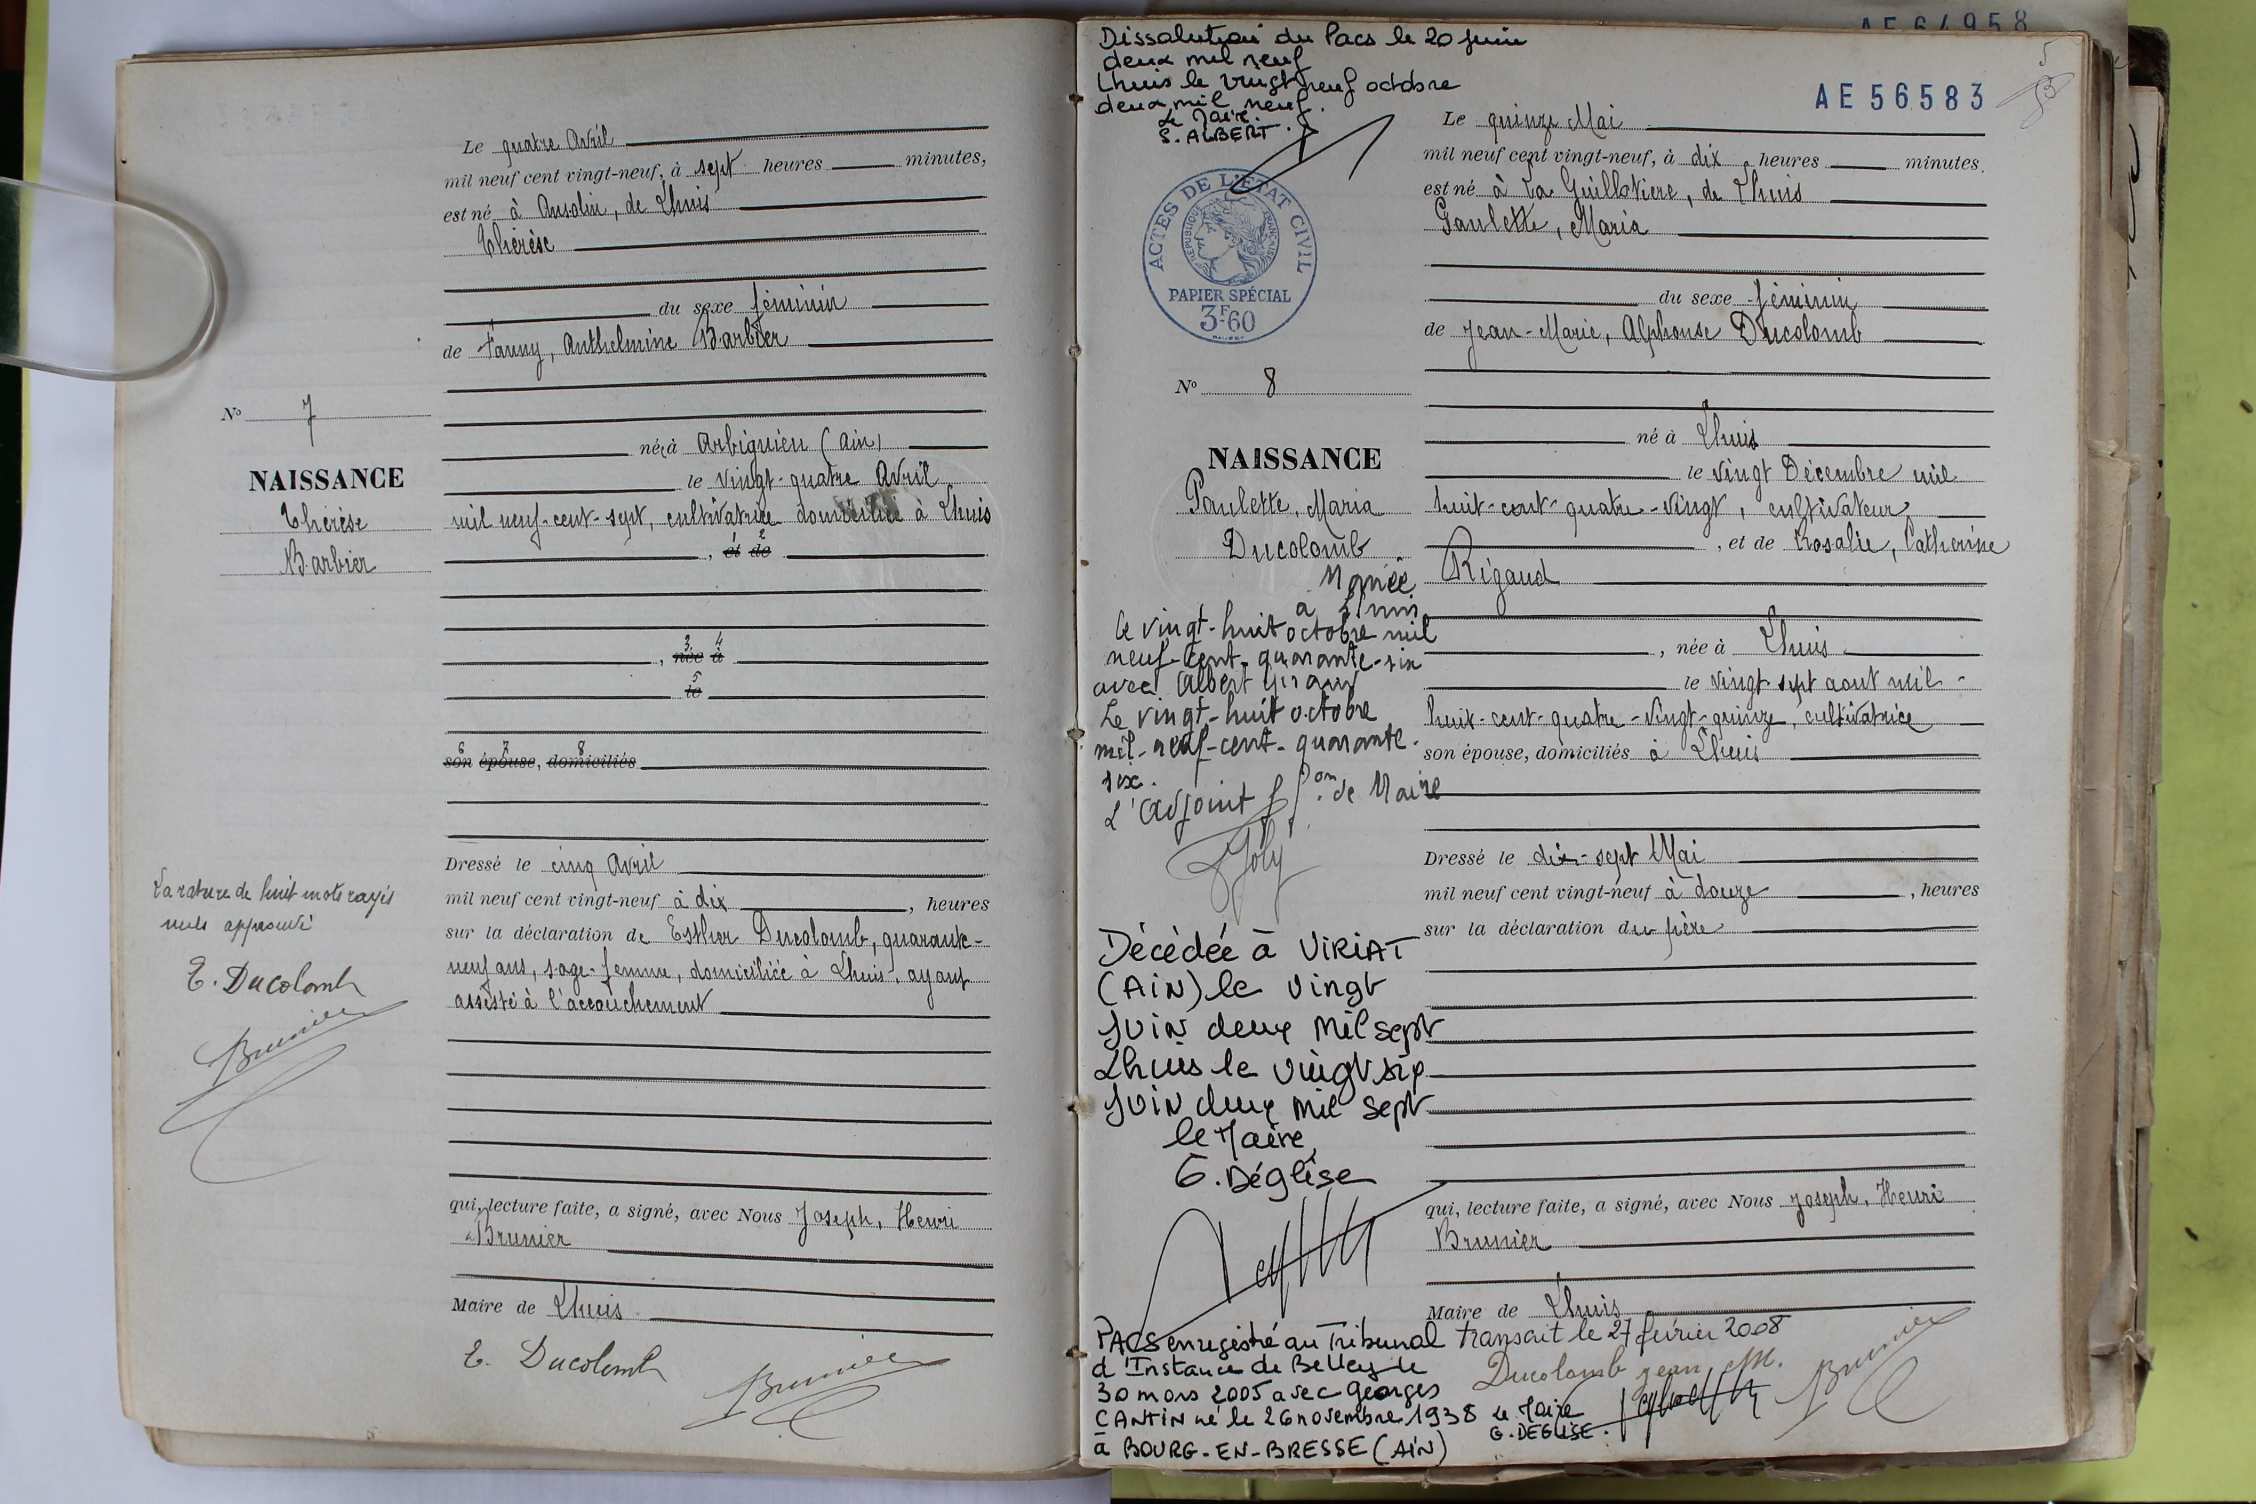 Le quatre Avril
mil neuf cent vingt-neuf, à sept heures minutes,
est né à Ansolin, de Lhuis
Thérèse
du sexe féminin
de Fanny, Anthelmine Barbier
né à Arbignieu (Ain)
le vingt-quatre Avril
mil neuf-cent-sept, cultivatrice domiciliée à Lhuis
, et de
, née à
le
son épouse, domiciliés
N° 7
NAISSANCE
Thérèse
Barbier
Dressé le cinq Avril
mil neuf cent vingt-neuf à dix , heures
sur la déclaration de Esther Ducolomb, quarante-
neuf ans, sage-femme, domiciliée à Lhuis, ayant
assisté à l'accouchement
La rature de huit mots rayés
nuls approuvé
E. Ducolomb
Brunier
qui, lecture faite, a signé, avec Nous Joseph, Henri
Brunier
Maire de Lhuis
E. Ducolomb
Brunier
Dissolution du Pacs le 20 juin
deux mil neuf
Lhuis le vingt neuf octobre
deux mil neuf.
Le Maire.
S. ALBERT.
ACTES DE L'ETAT CIVIL
REPUBLIQUE FRANÇAISE
PAPIER SPÉCIAL
3F-60
N° 8
NAISSANCE
Paulette, Maria
Ducolomb
Mariée
à Lhuis
le vingt-huit octobre mil
neuf-cent-quarante-six
avec Albert
Le vingt-huit octobre
mil-neuf-cent-quarante-
six.
L'Adjoint ff on de Maire
Joly
Décédée à VIRIAT
(AIN) le vingt
JUIN deux mil sept
Lhuis le vingt six
JUIN deux mil sept
le Maire
G. Déglise
PACS enregistré au Tribunal transcrit le 27 février 2008
d'Instance de Belley le
30 mars 2005 avec Georges
CANTIN né le 26 novembre 1938 Le Maire
à BOURG-EN-BRESSE (AIN) G. DEGLISE.
AE 64958
AE 56583
5
Le quinze Mai
mil neuf cent vingt-neuf, à dix heures minutes.
est né à La Guillotière, de Lhuis
Paulette, Maria
du sexe féminin
de Jean-Marie, Alphonse Ducolomb
né à Lhuis
le vingt Décembre mil
huit-cent-quatre-vingt, cultivateur
, et de Rosalie, Catherine
Rigaud
, née à Lhuis
le vingt sept aout mil-
huit-cent-quatre-vingt-quinze, cultivatrice
son épouse, domiciliés à Lhuis
Dressé le dix-sept Mai
mil neuf cent vingt-neuf à douze , heures
sur la déclaration du père
qui, lecture faite, a signé, avec Nous Joseph, Henri
Brunier
Maire de Lhuis
Ducolomb Jean M.
Brunier